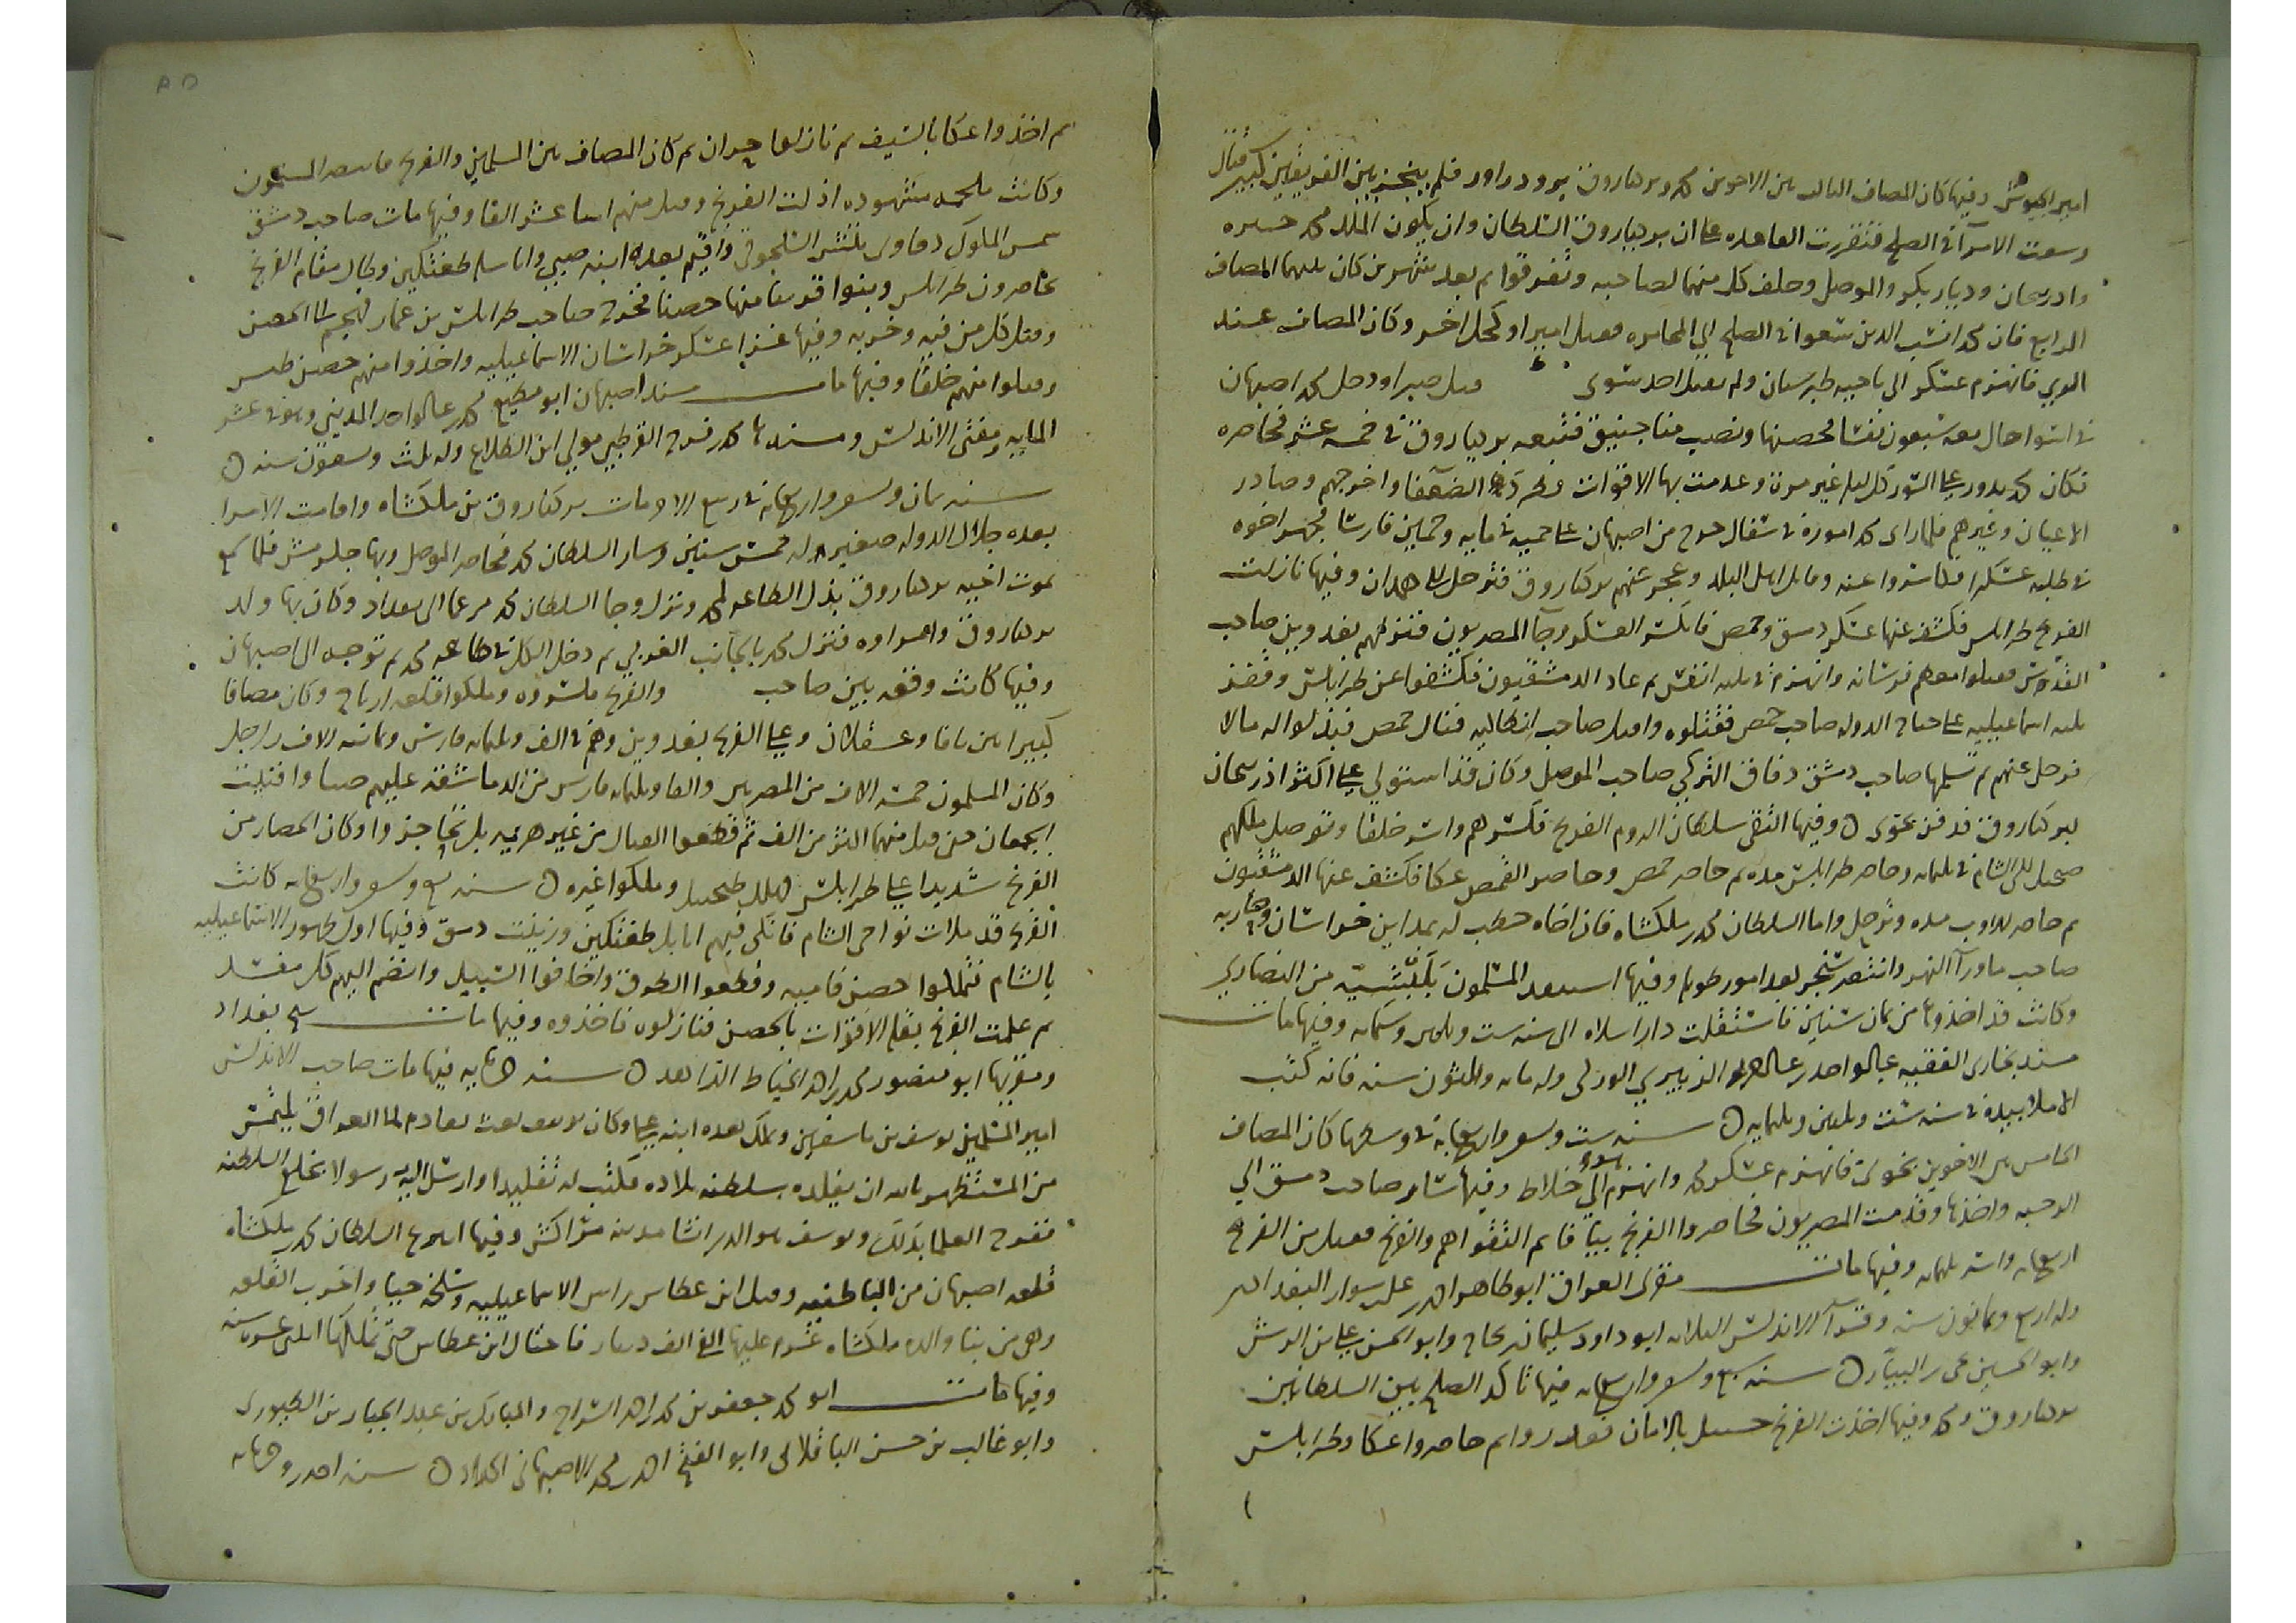 امير الجيوش وفيها كان المصاف الثالث بين الاخوين محمد وبركياروق بروذراور فلم ينجز بين الفريقين كبير قتال
وسعت الامرآ في الصلح فتقررت القاعده على ان بركياروق السلطان وان يكون الملك محمد جنزه
واذربيجان وديار بكر والموصل وحلف كل منهما لصاحبه وتفرقوا ثم بعد شهرين كان بينهما المصاف
الرابع فان محمدا نسب الذين سعوا في الصلح الى المخامره فقتل اميرا وكحل اخر وكان المصاف عند
الري فانهزم عسكر الى ناحية طبرستان ولم يقتل احد سوى قتل صبرا ودخل محمد اصبهان
في اسوا حال معه سبعون نفسا فحصنها ونصب مناجنيق فتبعه بركياروق في خمسه عشر فحاصره
فكان محمد يدور على السور كل ليله غير مرة وعدمت بها الاقوات فطرد الضعفا واخرجهم وصادر
الاعيان وغيرهم فلما راى محمد اموره في سفال خرج من اصبهان على حميه في مايه وخمسين فارسا فجهز اخوه
في طلبه عسكرا فكاسروا عنه وقاتل اهل البلد وعجز عنهم بركياروق فترحل الى همدان وفيها نازلت
الفرنج طرابلس فكشف عنها عسكر دمشق وحمص فانكسر العسكر وجآ المصريون فنزلهم بغدوين صاحب
القدس فقتلوا معظم فرسانه وانهزم في ثلثه انفس ثم عاد الدمشقيون فكشفوا عن طرابلس وقفز
ثلثه اسماعيليه على جناح الدوله صاحب حمص فقتلوه واقبل صاحب انطاكيه فنازل حمص فبذلوا له مالا
فرحل عنهم ثم تسلمها صاحب دمشق دقاق التركي صاحب الموصل وكان قد استولي على اكثر اذربيجان
لبركياروق فدفن بخوى ه وفيها التقى سلطان الروم الفرنج فكسرهم واسر خلقا وتوصل ملكهم
صنجيل الى الشام في ثلثمائه وحاصر طرابلس مده ثم حاصر حمص وحاصر القمص عكا فكشف عنها الدمشقيون
ثم حاصر اللاذقيه مده وترحل واما السلطان محمد بن ملكشاه فان اخاه خطب له بمداين خراسان وحاربه
صاحب ماورآ النهر وانتصر سنجر بعد امور طويله وفيها استعاد المسلمون بلنسيه من النصارى
وكانت قد اخذوها من ثمان سنين فاستقلت دار اسلام الى سنه ست وثلثين وستمائه وفيها مات
مسند بخارى الفقيه عبد الواحد بن عبد الرحمن الزبيري الوركي وله مائه وثلثون سنه فانه كتب
الاملا بيده في سنه ست وثلثين وثلثمايه ه سنه ست وتسعين واربعمايه في وسطها كان المصاف
الخامس بين الاخوين بخوى فانهزم عسكر محمد وانهزم هو الى خلاط وفيها سار صاحب دمشق الى
الرحبه واخذها وقدمت المصريون فحاصروا الفرنج بيافا ثم التقوا هم والفرنج فقتل من الفرنج
اربعمائه واسر ثلثمائه وفيها مات مقرئ العراق ابو طاهر احمد بن علي بن سوار البغدادي
وله اربع وثمانون سنه وقرآ الاندلس الثلاثه ابو داود سليمان بن نجاح وابو الحسن علي بن الدش
وابو الحسين يحيى بن البياز ه سنه سبع وتسعين واربعمائه فيها تاكد الصلح بين السلطانين
بركياروق ومحمد وفيها اخذت الفرنج جبيل بالامان فغدروا ثم حاصروا عكا وطرابلس
ثم اخذوا عكا بالسيف ثم نازلوا حران ثم كان المصاف بين المسلمين والفرنج فانتصر المسلمون
وكانت ملحمه مشهوده اذلت الفرنج وقتل منهم اثنا عشر الفا وفيها مات صاحب دمشق
شمس الملوك دقاق بن تتش السلجوقي واقيم بعده ابنه صبي واتابكه طغتكين وطال مقام الفرنج
يحاصرون طرابلس وبنوا قريبا منها حصنا فخرج صاحب طرابلس بن عمار فهجم الحصن
وقتل كل من فيه وخربه وفيها غزا عسكر خراسان الاسماعيليه واخذوا منهم حصن طبس
وقتلوا منهم خلقا وفيها مات مسند اصبهان ابو مطيع محمد بن عبد الواحد المديني وهو في عشر
المايه ومفتي الاندلس ومسندها محمد بن فرج القرطبي مولى ابن الطلاع وله ثلث وتسعون سنه ه
سنه ثمان وتسعين واربعمايه في ربيع الاخر مات بركياروق بن ملكشاه واقامت الامرا
بعده جلال الدوله صغير له خمس سنين وسار السلطان محمد فحاصر الموصل وبها جكرمش فلما سمع
بموت اخيه بركياروق بذل الطاعه لمحمد ونزل وجا السلطان محمد مسرعا الى بغداد وكان بها ولد
بركياروق وامراوه فنزل محمد بالجانب الغربي ثم دخل الكل في طاعه محمد ثم توجه الى اصبهان
وفيها كانت وقعه بين صاحب والفرنج فكسروه وملكوا قلعه ارتاح وكان مصافا
كبيرا بين يافا وعسقلان وعلى الفرنج بغدوين وهم في الف وثلثمائه فارس وثمانيه الاف راجل
وكان المسلمون خمسه الاف من المصريين والفا وثلثمائه فارس من الدماشقه عليهم صباوا فتلبث
الجمعان حتى قتل منهما اكثر من الف ثم قطعوا القتال من غير هزيمه بل تحاجزوا وكان الحصار من
الفرنج شديدا على طرابلس فهلك صنجيل وملكوا غيره ه سنه تسع وتسعين واربعمائه كانت
الفرنج قد ملات نواحي الشام فانكى فيهم اتابك طغتكين وزينت دمشق وفيها اول ظهور الاسماعيليه
بالشام فتملكوا حصن فاميه وقطعوا الطرق واخافوا السبيل وانضم اليهم كل مفسد
ثم علمت الفرنج بقلة الاقوات بالحصن فنازلوه فاخذوه وفيها مات شيخ بغداد
ومقريها ابو منصور محمد بن احمد الخياط الزاهد ه سنه خمسمايه فيها مات صاحب الاندلس
امير المسلمين يوسف بن تاشفين وتملك بعده ابنه علي وكان يوسف بعث تقادم الى العراق يلتمس
من المستظهر بالله ان يقلده بسلطنه بلاده فكتب له تقليدا وارسل اليه رسولا بخلع السلطنه
ففرح العلما بذلك ويوسف هو الذي انشا مدينه مراكش وفيها انتزع السلطان محمد بن ملكشاه
قلعه اصبهان من الباطنيه وقتل ابن عطاش راس الاسماعيليه وسلخه حيا واخرب القلعه
وهي من بنا والده ملكشاه غرم عليها الفي الف دينار فاحتال ابن عطاش حتى تملكها اثنتي عشره سنه
وفيها مات ابو محمد جعفر بن محمد بن احمد السراج والمبارك بن عبد الجبار بن الطيوري
وابو غالب بن حسن الباقلاني وابو الفتح احمد بن محمد الاصبهاني الحداد ه سنه احدى وخمسمائه